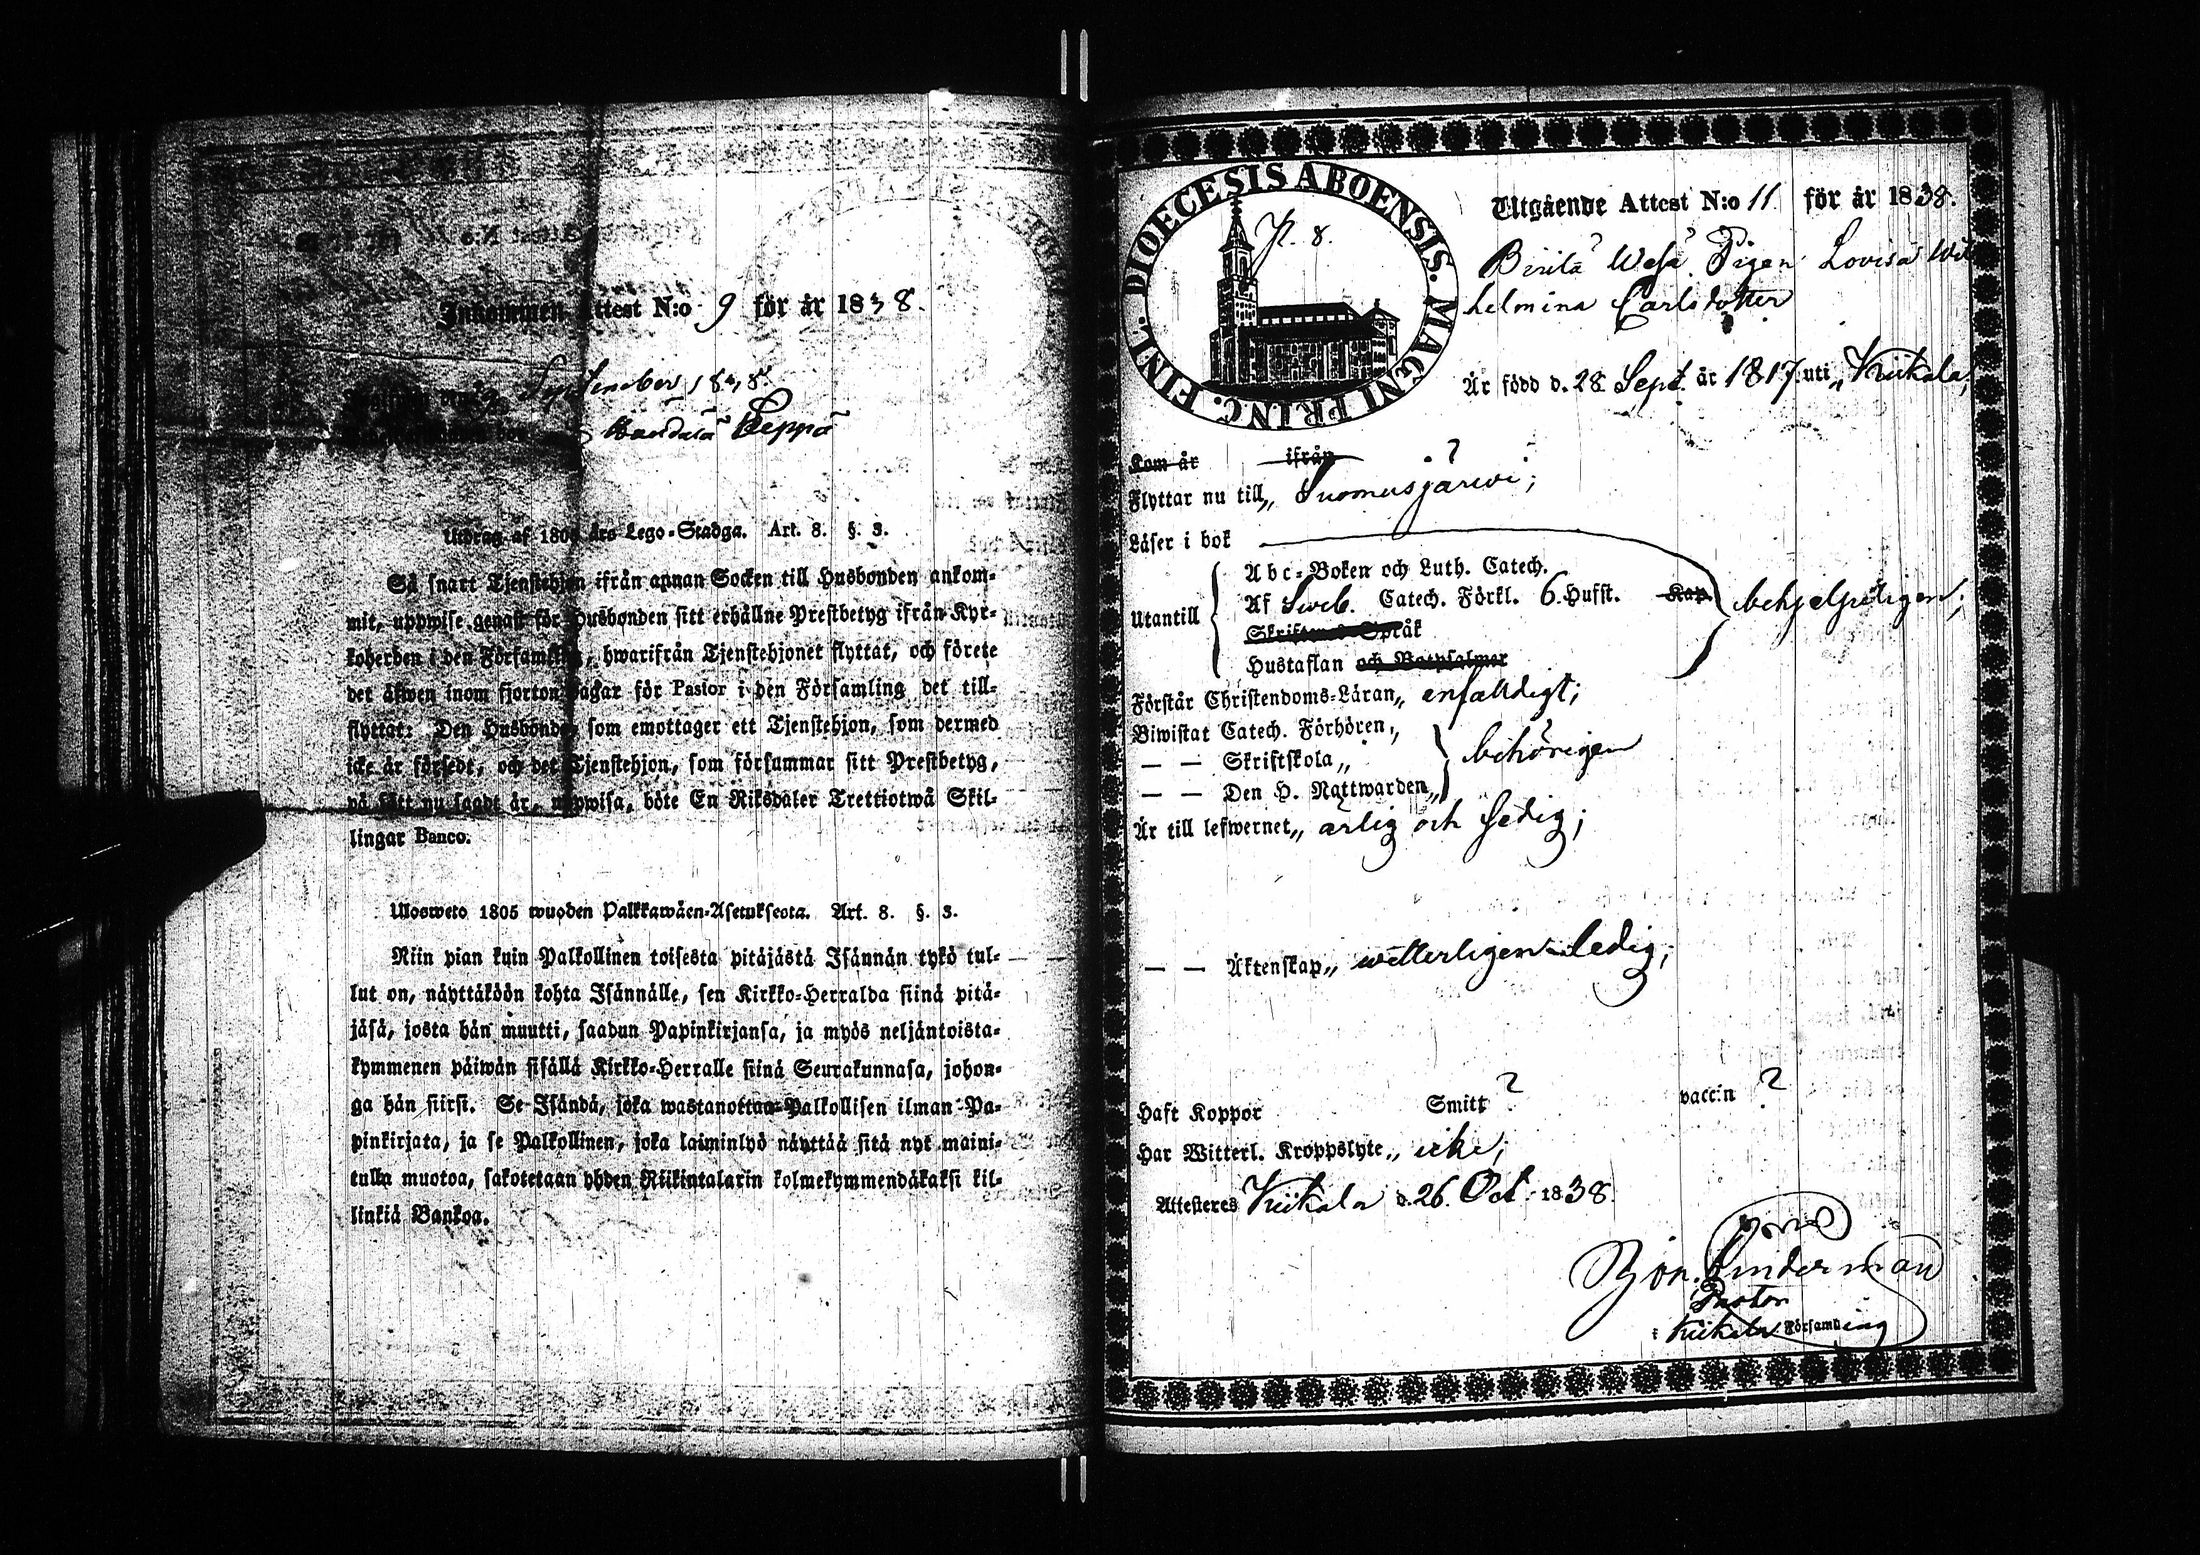 Inkommen Attest N:o 9 för år 1838.
September 1838.
Leppä
Utdrag af 1805 års Lego-Stadga. Art. 8. §. 3.
Så snart Tjenstehjon ifrån annan Socken till Husbonden ankom-
mit, uppwise genast för Husbonden sitt erhållne Prestbetyg ifrån Kyr-
koherden i den Församling, hwarifrån Tjenstehjonet flyttat, och förete
det äfwen inom fjorton dagar för Pastor i den Församling det till-
flyttat: Den Husbonde, som emottager ett Tjenstehjon, som dermed
icke är försedt, och det Tjenstehjon, som försummar sitt Prestbetyg,
på sätt nu sagdt är, uppwisa, böte En Riksdaler Trettiotwå Skil-
lingar Banco.
Ulosweto 1805 wuoden Palkkawäen-Asetuksesta. Art. 8. §. 3.
Niin pian kuin Palkollinen toisesta pitäjästä Isännän tykö tul-
lut on, näyttäköön kohta Isännälle, sen Kirkko-Herralda siinä pitä-
jäsä, josta hän muutti, saadun Papinkirjansa, ja myös neljäntoista-
kymmenen päiwän sisällä Kirkko-Herralle siinä Seurakunnasa, johon-
ga hän siirsi. Se Isändä, joka wastanottaa Palkollisen ilman Pa-
pinkirjata, ja se Palkollinen, joka laiminlyö näyttää sitä nyt maini-
tulla muotoa, sakotetaan yhden Riikintalarin kolmekymmendäkaksi kil-
linkiä Bankoa.
DIOECESIS ABOENSIS. MAGNI PRINC. FINL.
N. 8.
Utgående Attest N:o 11 för år 1838.
Pigan Lovisa Wil
helmina Carlsdotter
Är född d. 28 Sept. år 1817 uti „ Kiikala,
Kom år ifrån
Flyttar nu till „ Suomusjärwi;
Läser i bok
Utantill
Abc-Boken och Luth. Catech.
Af Sweb. Catech. Förkl. 6. Hufst. Kap. behjelpeligen;
Skriftenes Språk
Hustaflan och Botpsalmer
Förstår Christendoms-Läran „ enfaldigt;
Biwistat Catech. Förhören „
— — Skriftskola „ behörigen
— — Den H. Nattwarden „
Är till lefwernet „ ärlig och sedig;
— — Äktenskap „ wetterligen ledig;
Haft Koppor Smitt ? vaccin ?
Har Witterl. Kroppslyte „ icke;
Attesteras Kiikala d. 26. Oct. 1838.
Lindermän
Pastor
i Kiikala Församling